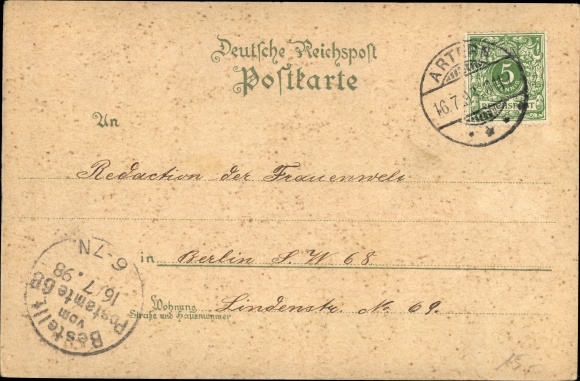 Deutsche Reichspost
Postkarte
ARTERN
16.7.9
5
PFENNIG
REICHSPOST
An
Redaction der Frauenwelt
in Berlin S. W 68
Wohnung Lindenstr. No. 69.
Straße und Hausnummer
Bestellt
vom
Postamte 68
16/7.98
6-7N